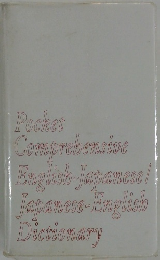 Pocket
Comprehensive
English-Japanese/
Japanese-English
Dictionary